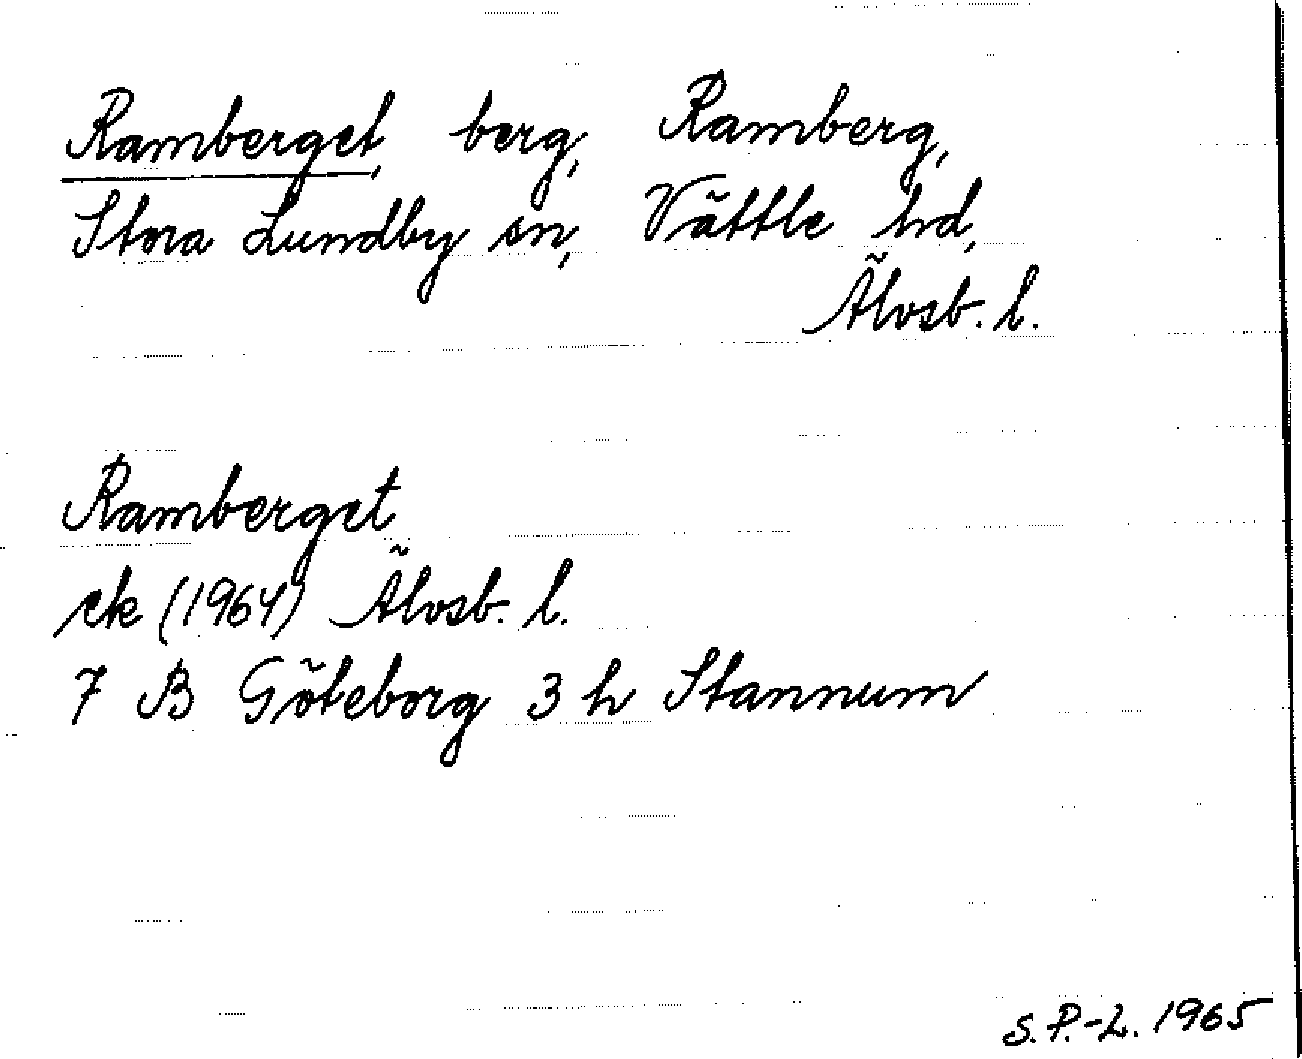 Ramberget, berg, Ramberg,
Stora Lundby sn, Vättle hd,
Älvsb. l.
Ramberget
ek (1964) Älvsb. l.
7 B Göteborg 3 h Stannum
S. P.-L. 1965